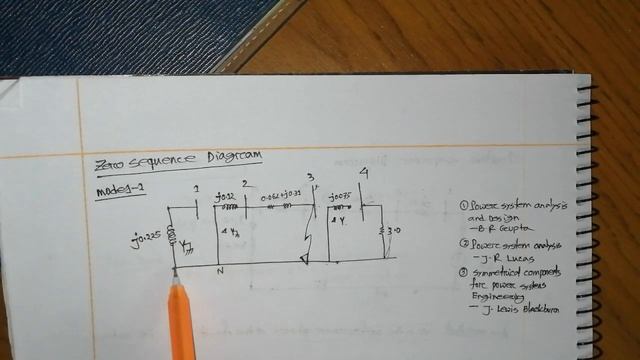 Zero sequence Diagram
model-1
1
2
3
4
j0.12
0.062+j0.31
j0.075
j0.225
Y
Δ Y
Δ Y
3.0
N
① Power system analysis
and Design
- B R Gupta
② Power system analysis
- J. R Lucas
③ Symmetrical components
for power systems
Engineering
- J. Lewis Blackburn